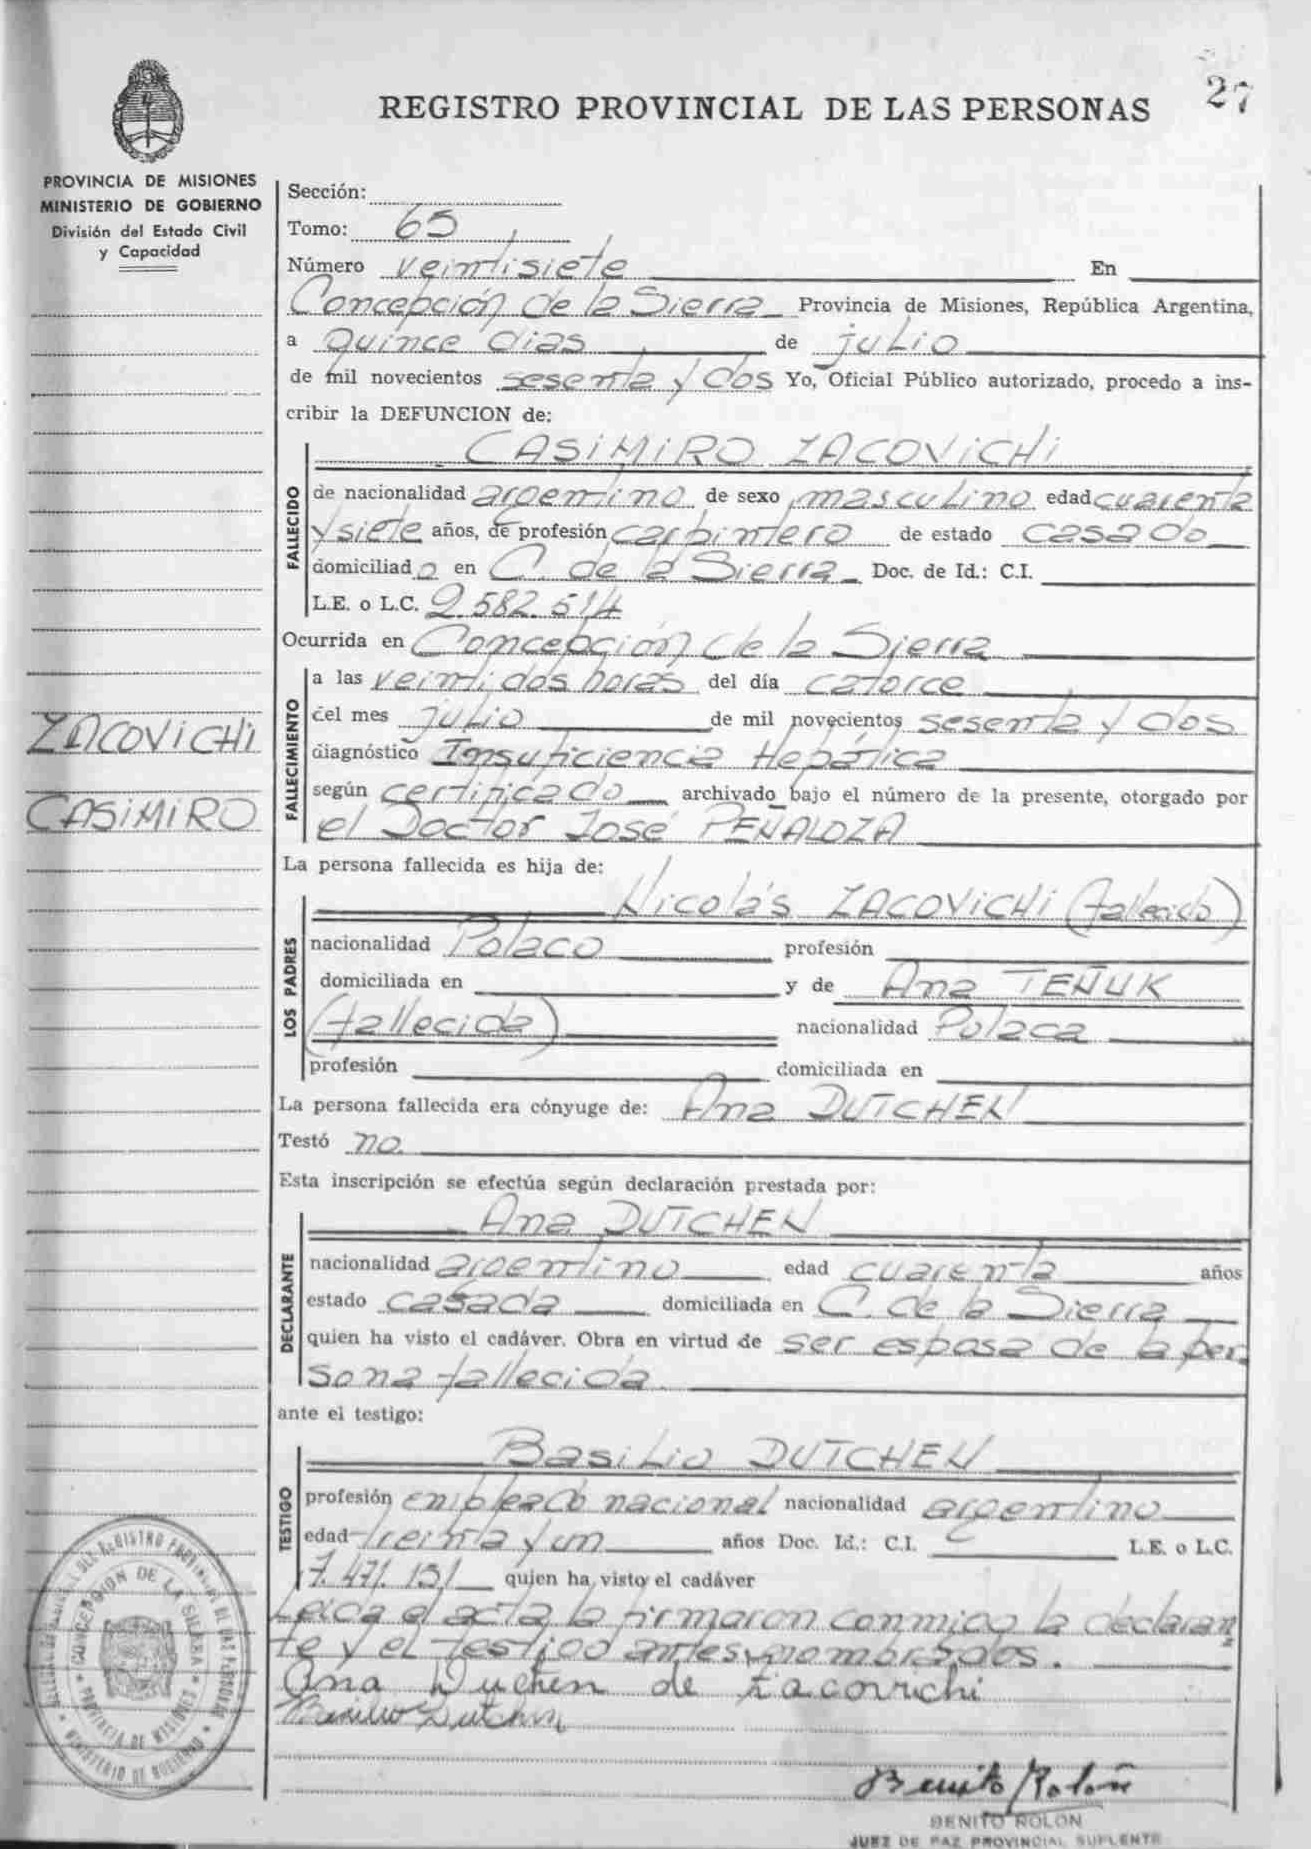 27
REGISTRO PROVINCIAL DE LAS PERSONAS
PROVINCIA DE MISIONES
MINISTERIO DE GOBIERNO
División del Estado Civil
y Capacidad
Sección:
Tomo: 65
Número veintisiete En
Concepción de la Sierra Provincia de Misiones, República Argentina,
a Quince dias de julio
de mil novecientos sesenta y dos Yo, Oficial Público autorizado, procedo a ins-
cribir la DEFUNCION de:
FALLECIDO
CASIMIRO ZACOVICHI
de nacionalidad argentino de sexo masculino edad cuarenta
y siete años, de profesión carpintero de estado casado
domiciliado en C. de la Sierra Doc. de Id.: C.I.
L.E. o L.C. 2.582.514
Ocurrida en Concepción de la Sierra
FALLECIMIENTO
a las veintidos horas del día catorce
del mes julio de mil novecientos sesenta y dos
diagnóstico Insuficiencia Hepática
según certificado archivado bajo el número de la presente, otorgado por
el Doctor José PEÑALOZA
ZACOVICHI
CASIMIRO
La persona fallecida es hija de:
LOS PADRES
Nicolás ZACOVICHI (fallecido)
nacionalidad Polaco profesión
domiciliada en y de Ana TEÑUK
(fallecida) nacionalidad Polaca
profesión domiciliada en
La persona fallecida era cónyuge de: Ana DUTCHEN
Testó no.
Esta inscripción se efectúa según declaración prestada por:
DECLARANTE
Ana DUTCHEN
nacionalidad argentino edad cuarenta años
estado casada domiciliada en C. de la Sierra
quien ha visto el cadáver. Obra en virtud de ser esposa de la per-
sona fallecida.
ante el testigo:
TESTIGO
Basilio DUTCHEN
profesión empleado nacional nacionalidad argentino
edad treinta y un años Doc. Id.: C.I. L.E. o L.C.
7.471.131 quien ha visto el cadáver
Leida el acta la firmaron conmigo la declaran
te y el testigo antes nombrados.
Ana Dutchen de Zacovichi
Basilio Dutchen
CONCEPCION DE LA SIERRA
PROVINCIA DE MISIONES
MINISTERIO DE GOBIERNO
Benito Rolón
BENITO ROLON
JUEZ DE PAZ PROVINCIAL SUPLENTE